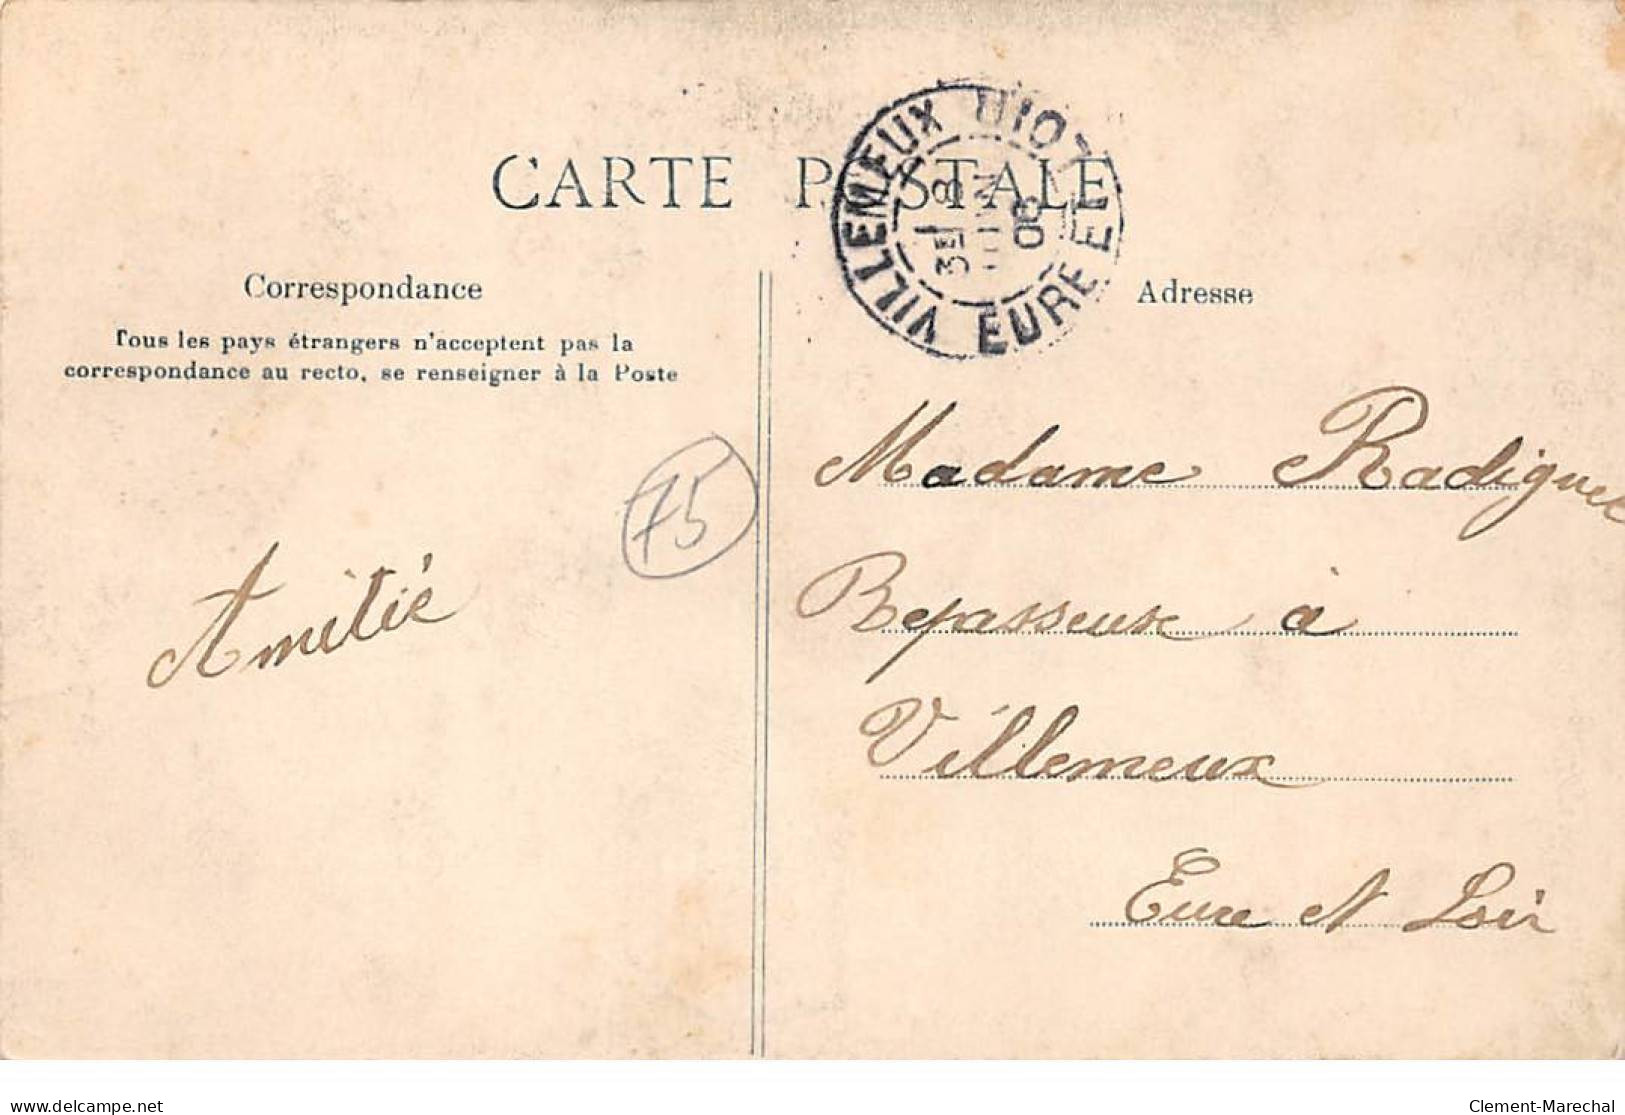 CARTE POSTALE
VILLEMEUX EURE ET LOIR
3E 8
JUIN
08
Correspondance
Tous les pays étrangers n'acceptent pas la
correspondance au recto, se renseigner à la Poste
Adresse
75
Amitié
Madame Radiguet
Repasseuse à
Villemeux
Eure et Loir
delcampe.net
Clement-Marechal